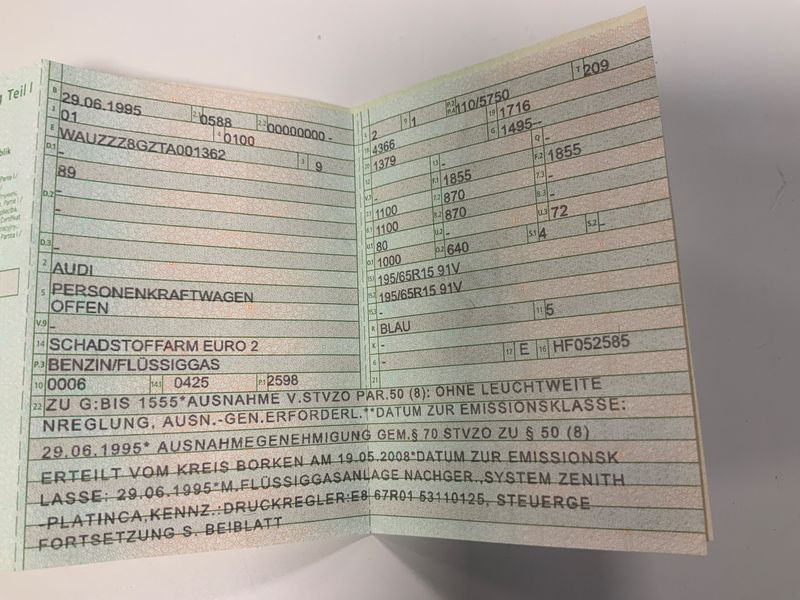 g Teil I
B 29.06.1995 2.1 0588 2.2 00000000 -
J 01 4 0100
E WAUZZZ8GZTA001362 3 9
D.1 -
89
D.2 -
-
-
D.3 -
2 AUDI
5 PERSONENKRAFTWAGEN
OFFEN
V.9 -
14 SCHADSTOFFARM EURO 2
P.3 BENZIN/FLÜSSIGGAS
10 0006 14.1 0425 P.1 2598
L 2 9 1 P.2 P.4 110/5750 T 209
18 4366 19 1716
20 1379 G 1495--
12 - 13 - Q -
V.7 - F.1 1855 F.2 1855
7.1 1100 7.2 870 7.3 -
8.1 1100 8.2 870 8.3 -
U.1 80 U.2 - U.3 72
O.1 1000 O.2 640 S.1 4 S.2 -
15.1 195/65R15 91V
15.2 195/65R15 91V
15.3 -
R BLAU 11 5
K -
6 - 17 E 16 HF052585
21
22 ZU G:BIS 1555*AUSNAHME V.STVZO PAR.50 (8): OHNE LEUCHTWEITE
NREGLUNG, AUSN.-GEN.ERFORDERL.**DATUM ZUR EMISSIONSKLASSE:
29.06.1995* AUSNAHMEGENEHMIGUNG GEM.§ 70 STVZO ZU § 50 (8)
ERTEILT VOM KREIS BORKEN AM 19.05.2008*DATUM ZUR EMISSIONSK
LASSE: 29.06.1995*M.FLÜSSIGGASANLAGE NACHGER.,SYSTEM ZENITH
-PLATINCA,KENNZ.:DRUCKREGLER:E8 67R01 53110125, STEUERGE
FORTSETZUNG S. BEIBLATT